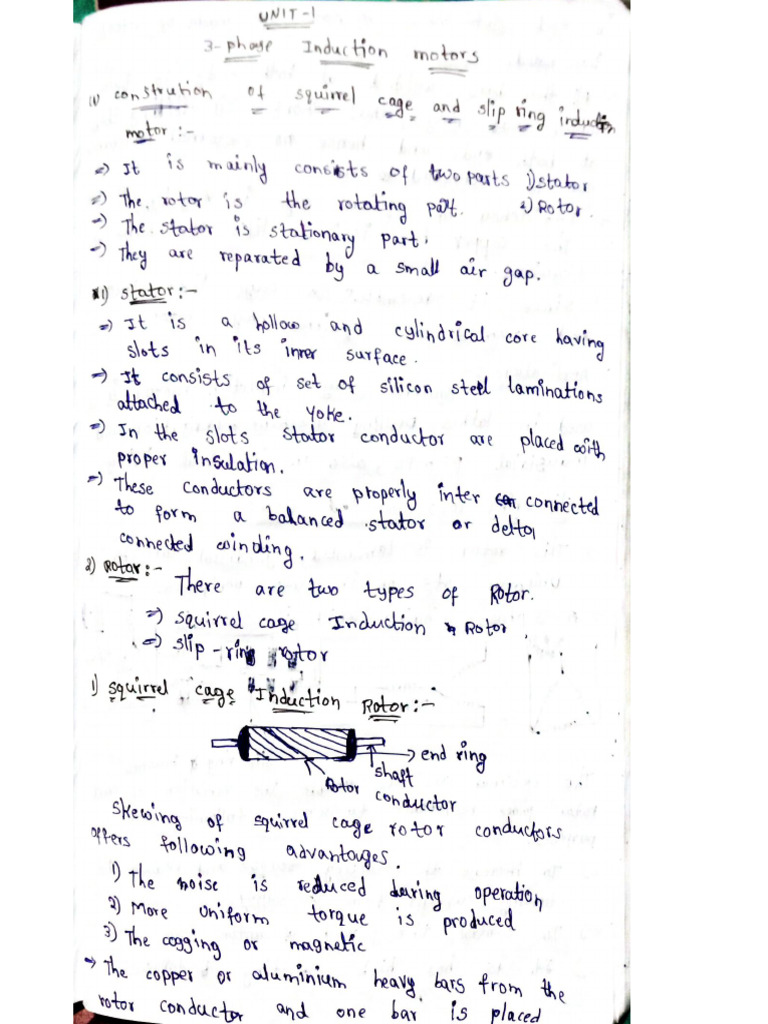 UNIT-1
3-phase Induction motors
(1) constrution of squirrel cage and slip ring induction
motor:-
=> It is mainly consists of two parts 1) stator
=> The rotor is the rotating part. 2) Rotor.
=> The stator is stationary part.
=> They are reparated by a small air gap.
1) stator:-
=> It is a hollow and cylindrical core having
slots in its inner surface.
=> It consists of set of silicon steel laminations
attached to the yoke.
=> In the slots stator conductor are placed with
proper insulation.
=> These conductors are properly inter connected
to form a balanced stator or delta
connected winding.
2) Rotar:-
There are two types of Rotor.
=> squirrel cage Induction Rotor
=> slip-ring rotor
1) squirrel cage Induction Rotor:-
end ring
shaft
Rotor conductor
Skewing of squirrel cage rotor conductors
offers following advantages.
1) The noise is reduced during operation
2) More Uniform torque is produced
3) The cogging or magnetic
=> The copper or aluminium heavy bars from the
rotor conductor and one bar is placed